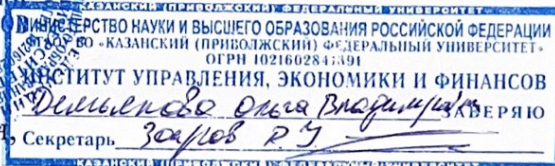 КАЗАНСКИЙ (ПРИВОЛЖСКИЙ) ФЕДЕРАЛЬНЫЙ УНИВЕРСИТЕТ
МИНИСТЕРСТВО НАУКИ И ВЫСШЕГО ОБРАЗОВАНИЯ РОССИЙСКОЙ ФЕДЕРАЦИИ
«КАЗАНСКИЙ (ПРИВОЛЖСКИЙ) ФЕДЕРАЛЬНЫЙ УНИВЕРСИТЕТ»
ОГРН 1021602841391
ИНСТИТУТ УПРАВЛЕНИЯ, ЭКОНОМИКИ И ФИНАНСОВ
Ольга ЗАВЕРЯЮ
Секретарь
КАЗАНСКИЙ (ПРИВОЛЖСКИЙ) ФЕДЕРАЛЬНЫЙ УНИВЕРСИТЕТ